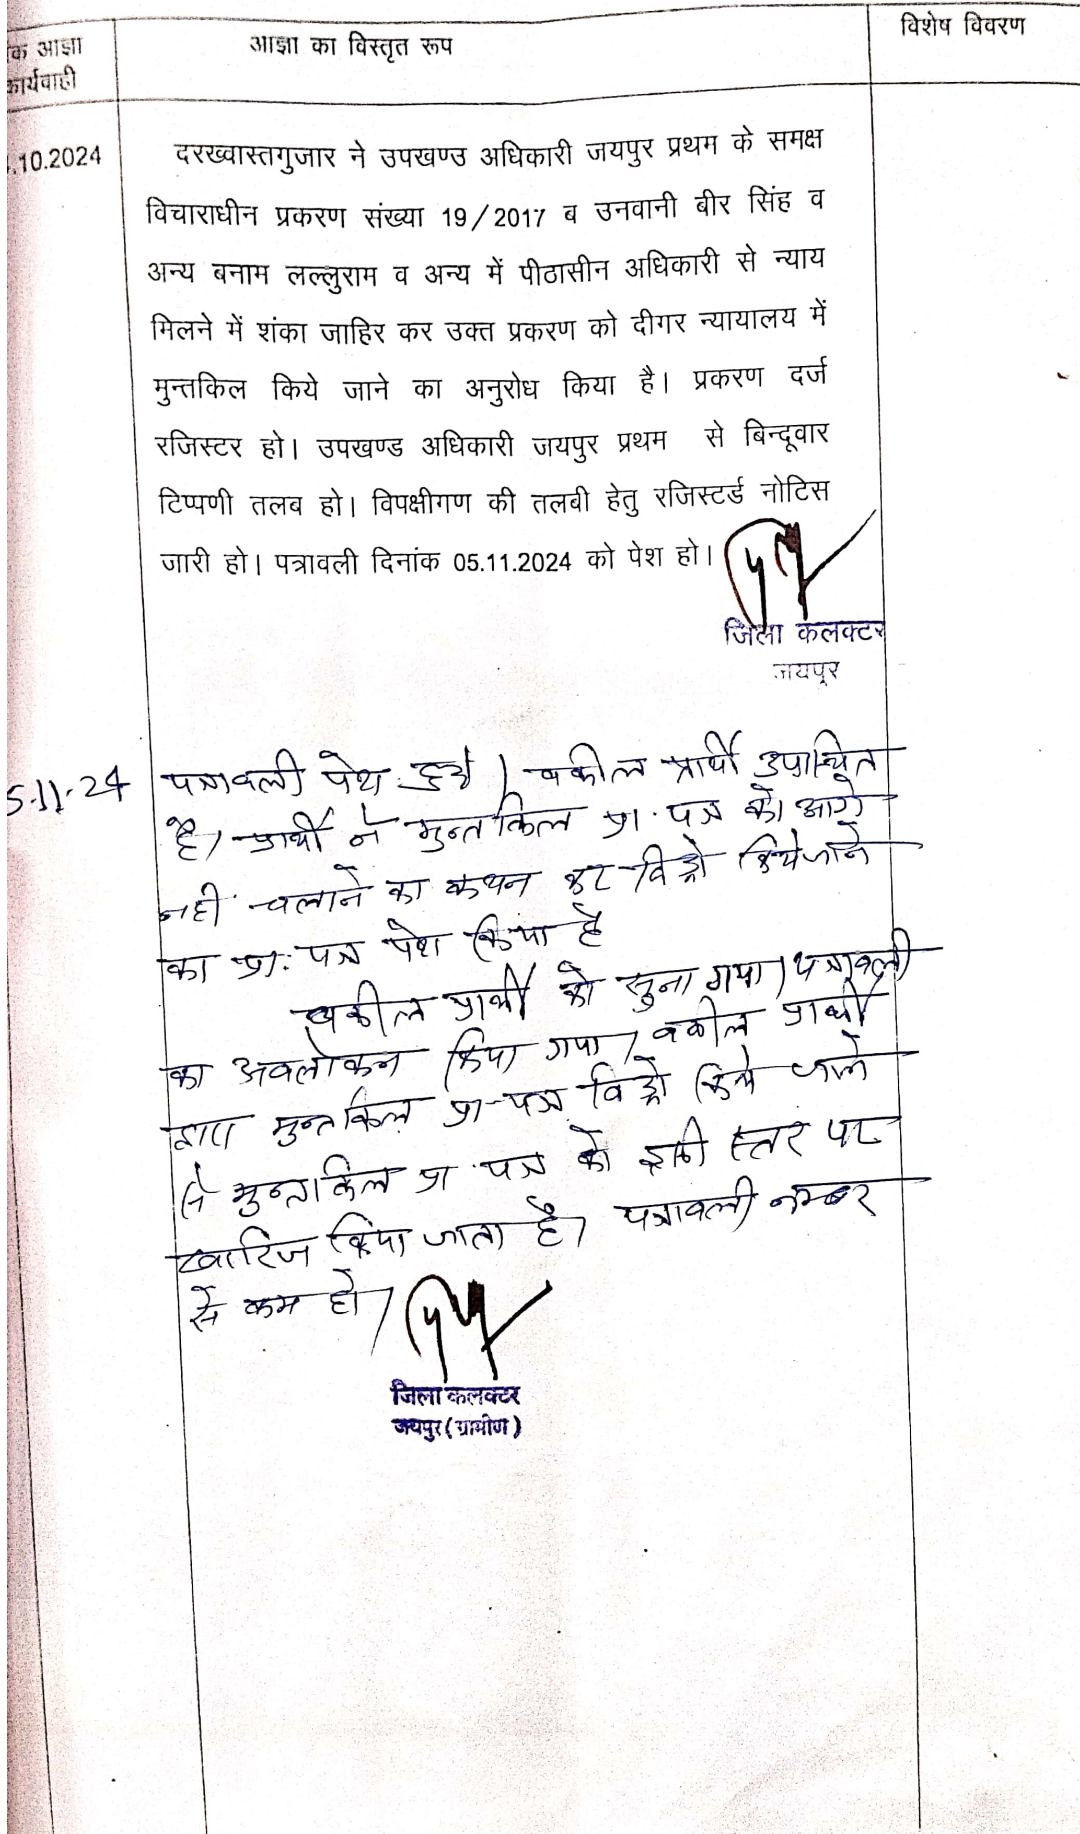 क आज्ञा
कार्यवाही
आज्ञा का विस्तृत रूप
विशेष विवरण
.10.2024
दरख्वास्तगुजार ने उपखण्उ अधिकारी जयपुर प्रथम के समक्ष
विचाराधीन प्रकरण संख्या 19/2017 ब उनवानी बीर सिंह व
अन्य बनाम लल्लुराम व अन्य में पीठासीन अधिकारी से न्याय
मिलने में शंका जाहिर कर उक्त प्रकरण को दीगर न्यायालय में
मुन्तकिल किये जाने का अनुरोध किया है। प्रकरण दर्ज
रजिस्टर हो। उपखण्ड अधिकारी जयपुर प्रथम से बिन्दूवार
टिप्पणी तलब हो। विपक्षीगण की तलबी हेतु रजिस्टर्ड नोटिस
जारी हो। पत्रावली दिनांक 05.11.2024 को पेश हो।
जिला कलक्टर
जयपुर
5-11-24
पत्रावली पेश हुयी। वकील प्रार्थी उपस्थित
है। प्रार्थी ने मुन्तकिल प्रा. पत्र को आगे
नहीं चलाने का कथन कर विड्रो किये जाने
का प्रा. पत्र पेश किया है
वकील प्रार्थी को सुना गया। पत्रावली
का अवलोकन किया गया। वकील प्रार्थी
द्वारा मुन्तकिल प्रा-पत्र विड्रो किये जाने
से मुन्तकिल प्रा. पत्र को इसी स्तर पर
खारिज किया जाता है। पत्रावली नम्बर
से कम हो।
जिला कलक्टर
जयपुर (ग्रामीण)